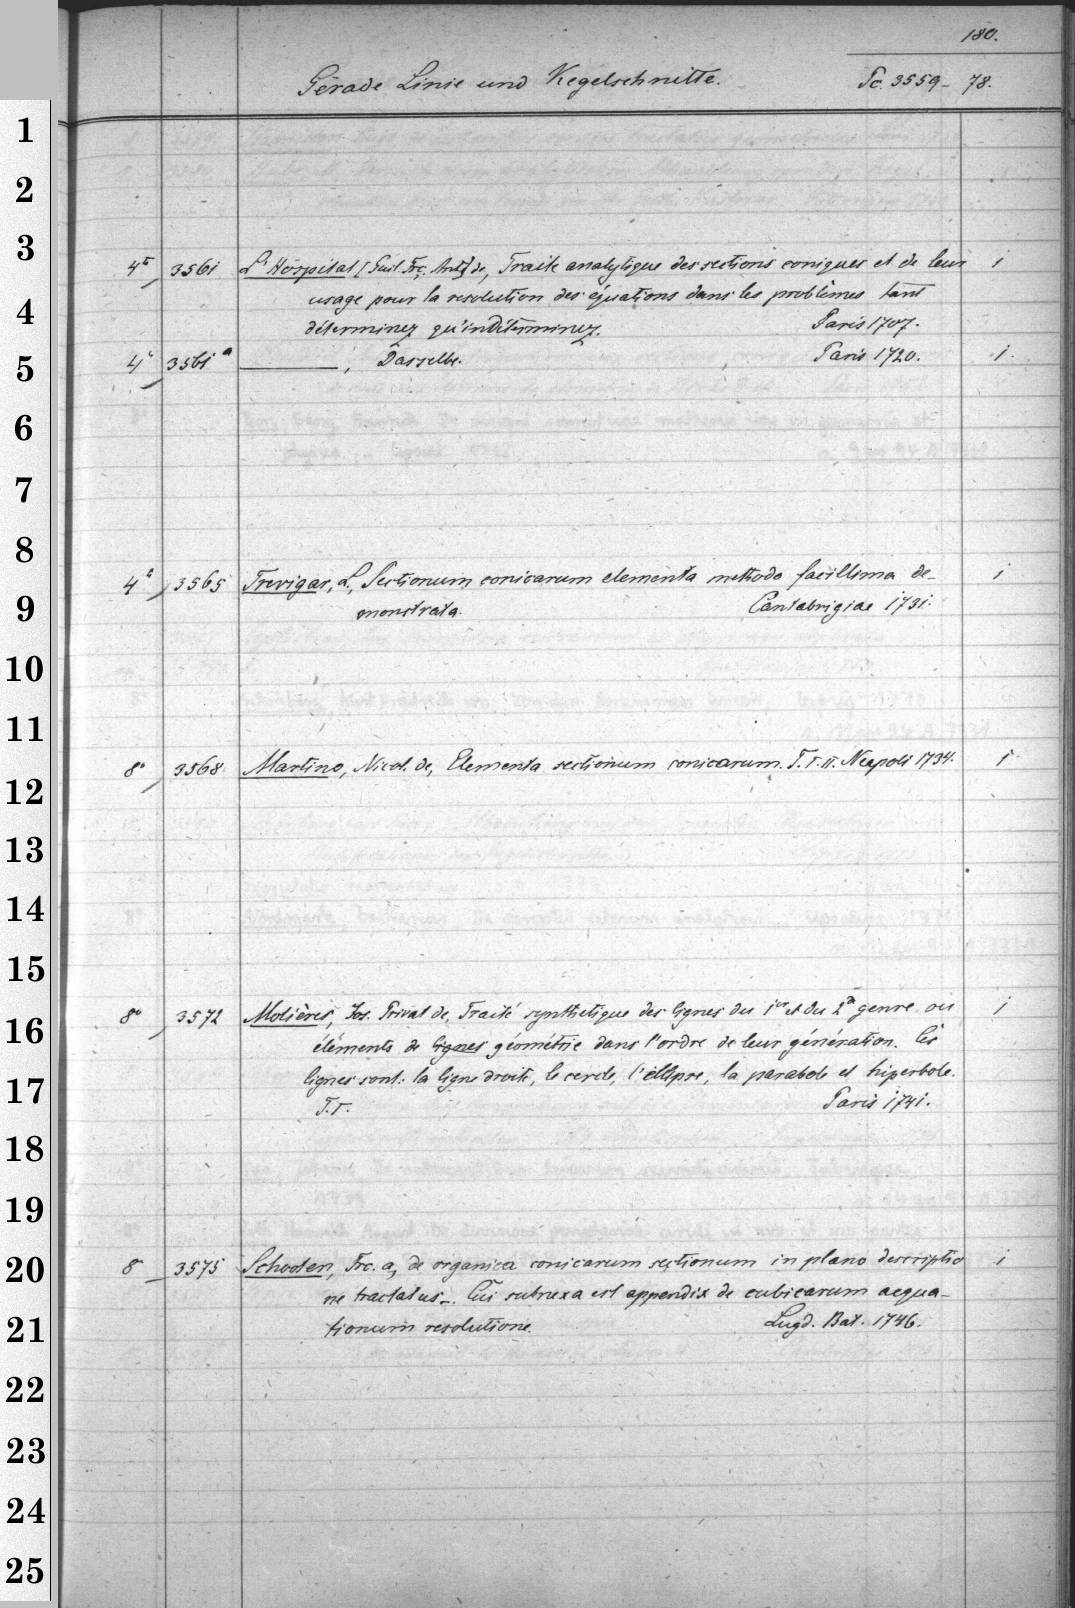 180.
Gerade Linie und Kegelschnitte. Sc. 3559- 78.
1
2
3
4° 3561 L'Hospital (Guil. Frç. Ant.) de, Traite analytique des sections coniques et de leur 1
usage pour la resolution des équations dans les problèmes tant
4
déterminez qu'indéterminez. Paris 1707.
5
4° 3561a ———, Dasselbe. Paris 1720. 1.
6
7
8
4° 3565 Trevigar, L., Sectionum conicarum elementa methodo facillima de- 1
9
monstrata. Cantabrigiae 1731.
10
11
8° 3568 Martino, Nicol. de, Elementa sectionum conicarum. T. I. II. Neapoli 1734. 1
12
13
14
15
8° 3572 Molières, Jos. Privat de, Traité synthetique des lignes du 1er et du 2d genre ou 1
16
éléments de lignes géométrie dans l'ordre de leur génération. Ces
lignes sont: la ligne droite, le cercle, l'ellipse, la parabole et hiperbole.
17
T. I. Paris 1741.
18
19
8° 3575 Schooten, Frc. a, de organica conicarum sectionum in plano descriptio 1
20
ne tractatus-. Cui subnexa est appendix de cubicarum aequa-
21
tionum resolutione. Lugd. Bat. 1746.
22
23
24
25